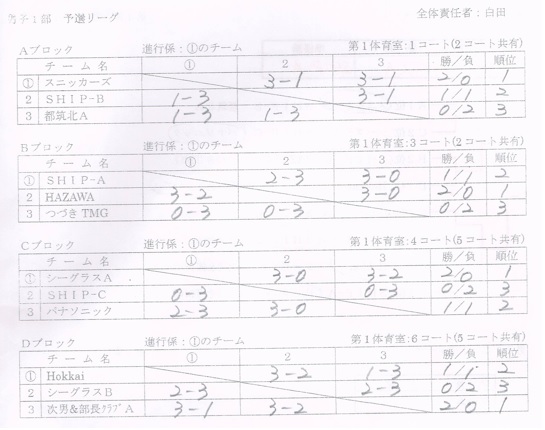 男子1部 予選リーグ 全体責任者：白田
Aブロック 進行係：①のチーム 第1体育室：1コート(2コート共有)
チーム名 ① 2 3 勝／負 順位
① スニッカーズ 3-1 3-1 2/0 1
2 SHIP-B 1-3 3-1 1/1 2
3 都筑北A 1-3 1-3 0/2 3
Bブロック 進行係：①のチーム 第1体育室：3コート(2コート共有)
チーム名 ① 2 3 勝／負 順位
① SHIP-A 2-3 3-0 1/1 2
2 HAZAWA 3-2 3-0 2/0 1
3 つづきTMG 0-3 0-3 0/2 3
Cブロック 進行係：①のチーム 第1体育室：4コート(5コート共有)
チーム名 ① 2 3 勝／負 順位
① シーグラスA 3-0 3-2 2/0 1
2 SHIP-C 0-3 0-3 0/2 3
3 パナソニック 2-3 3-0 1/1 2
Dブロック 進行係：①のチーム 第1体育室：6コート(5コート共有)
チーム名 ① 2 3 勝／負 順位
① Hokkai 3-2 1-3 1/1 2
2 シーグラスB 2-3 2-3 0/2 3
3 次男&部長クラブA 3-1 3-2 2/0 1